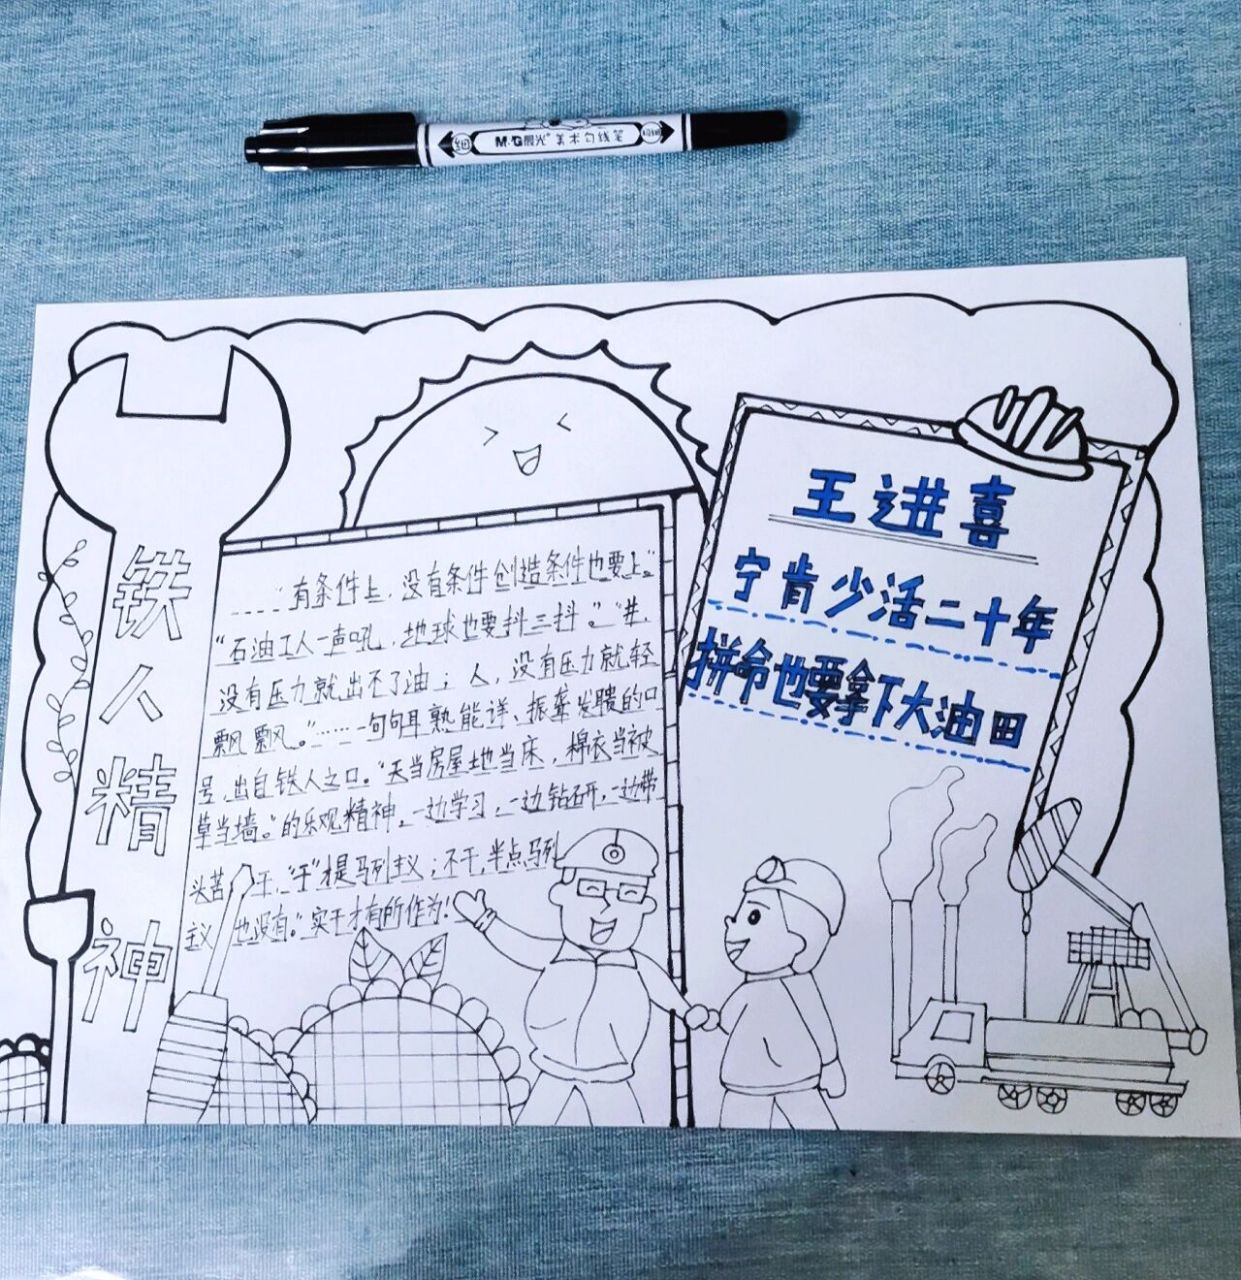 细
M&G晨光 美术勾线笔
铁
人
精
神
……"有条件上,没有条件创造条件也要上"
"石油工人一声吼,地球也要抖三抖。""井,
没有压力就出不了油;人,没有压力就轻
飘飘。"……一句句耳熟能详、振聋发聩的口
号,出自铁人之口。"天当房屋地当床,棉衣当被
草当墙。"的乐观精神。一边学习,一边钻研,一边带
头苦干,"干"才是马列主义;不干,半点马列
主义也没有。"实干才有所作为!
王进喜
宁肯少活二十年
拼命也要拿下大油田